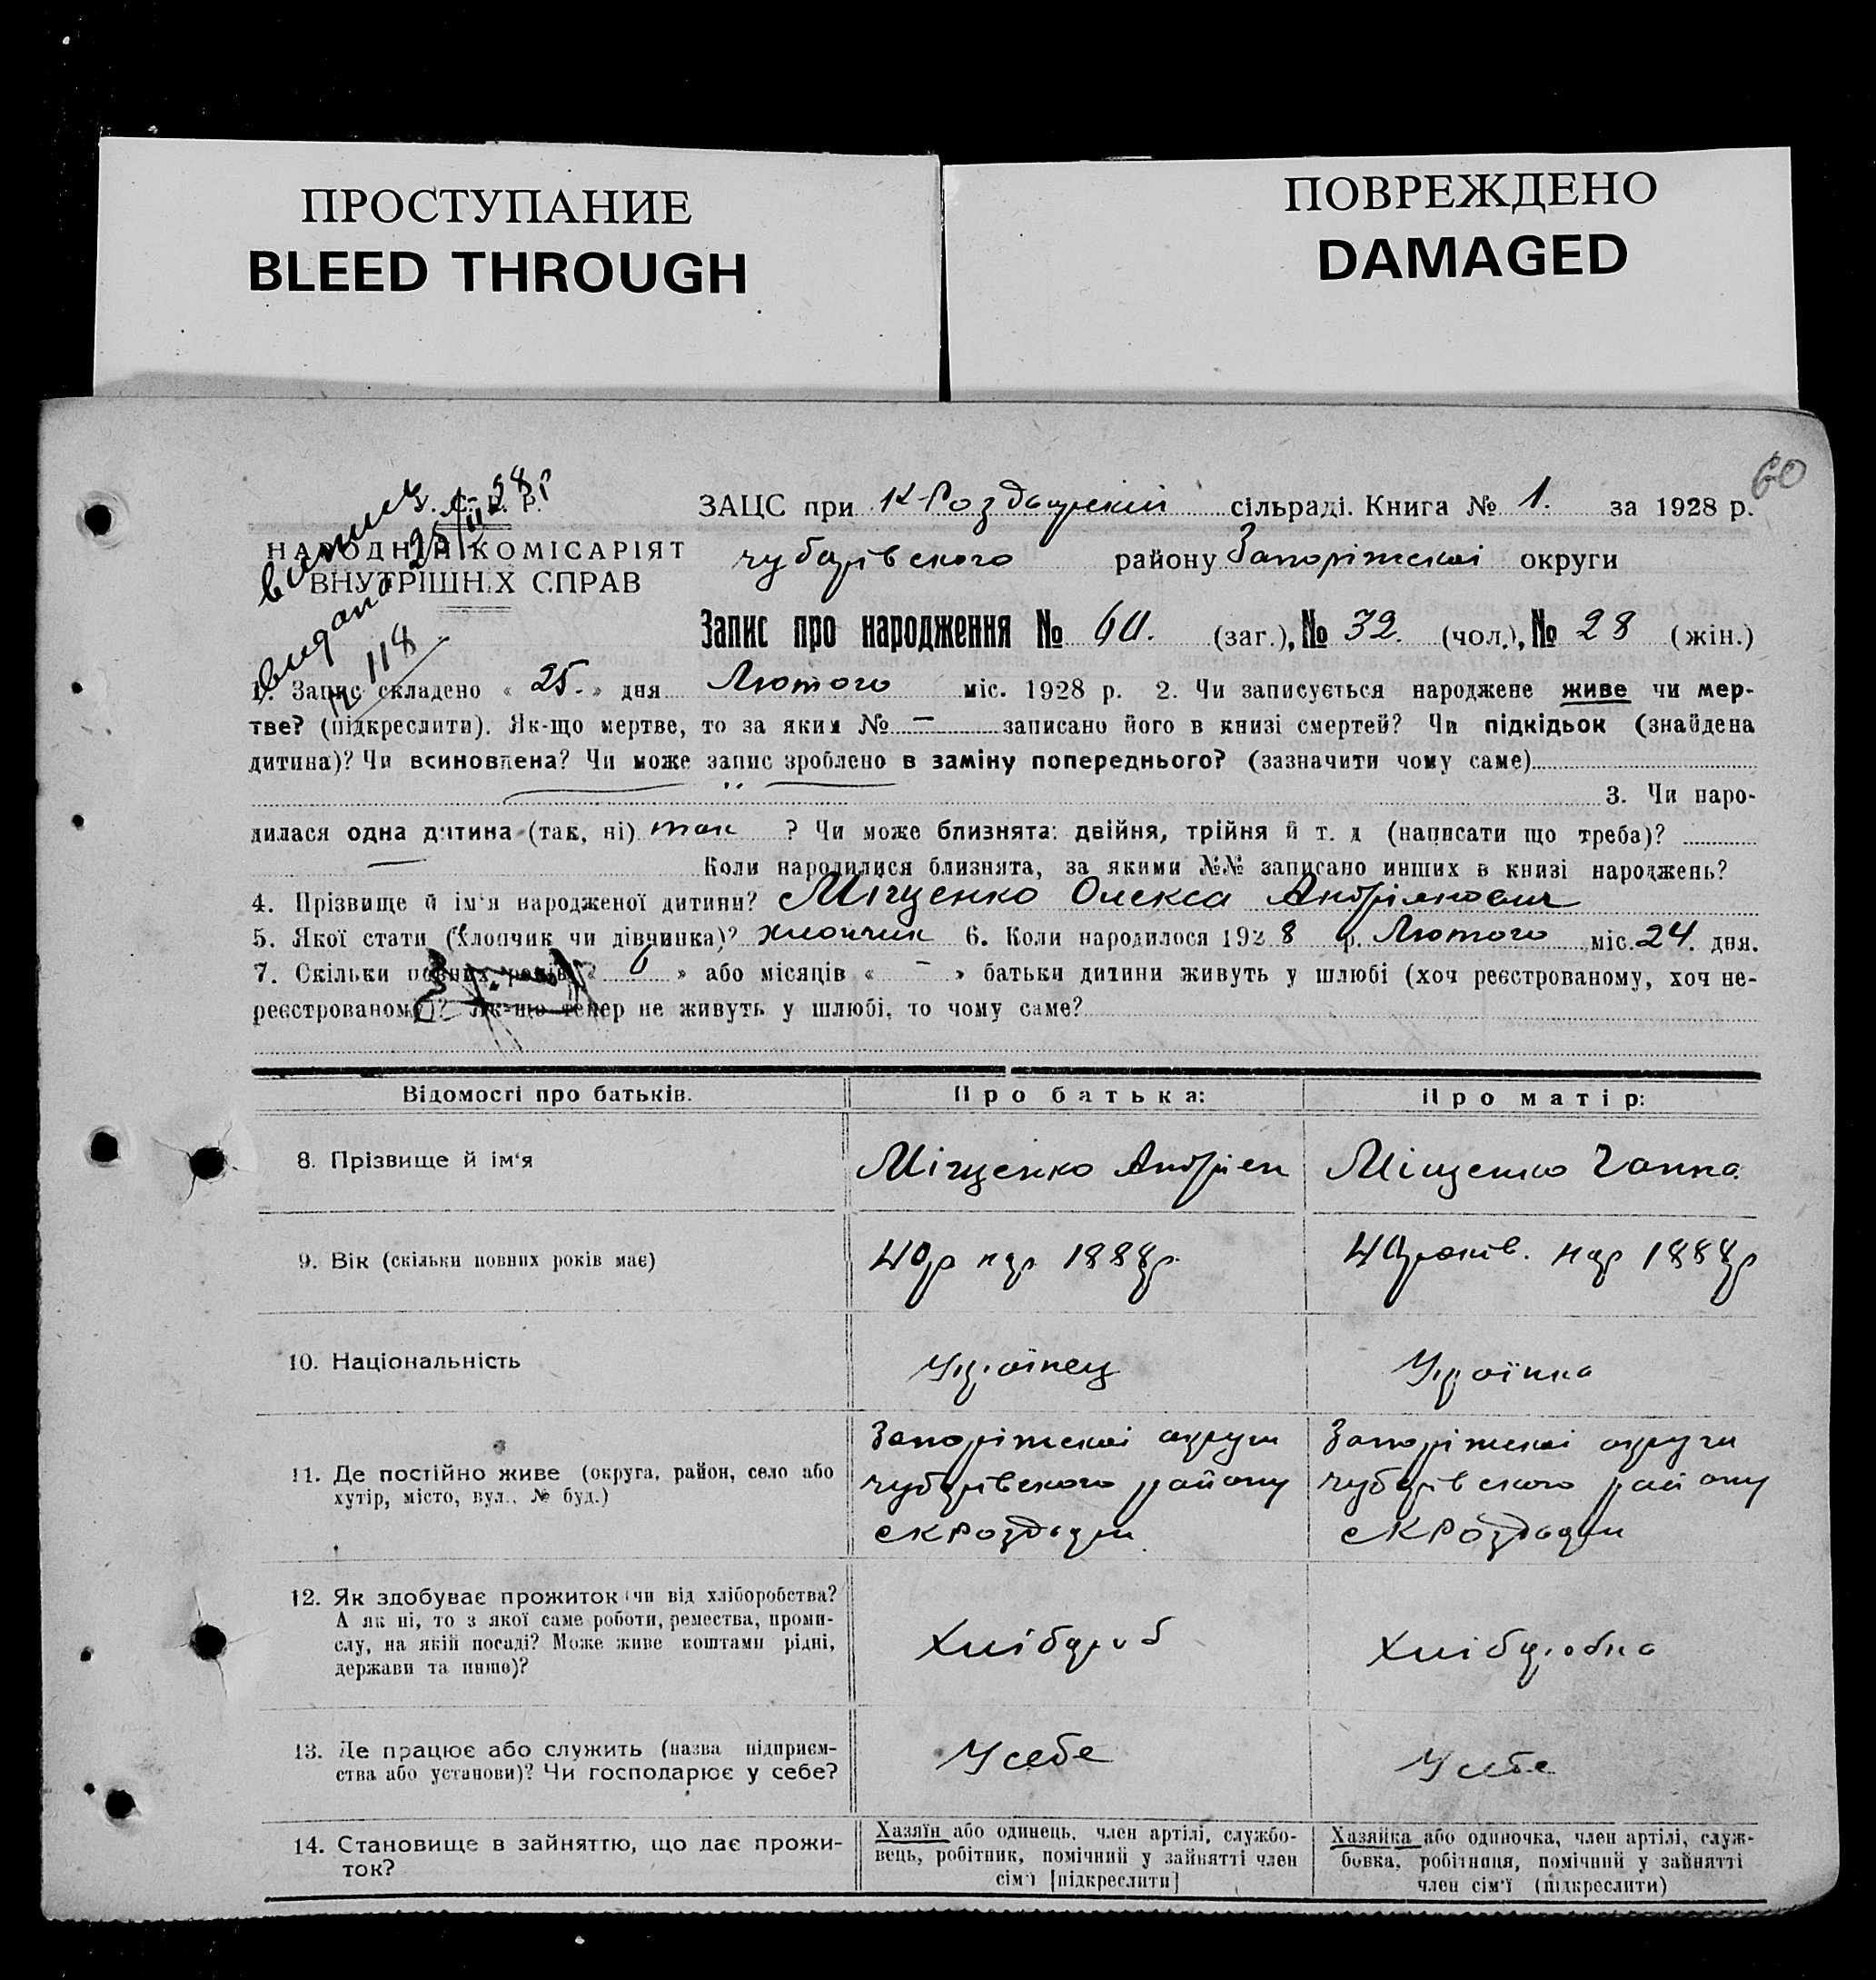 ПРОСТУПАНИЕ
BLEED THROUGH
ПОВРЕЖДЕНО
DAMAGED
60
28р
25/II
видано
118
НАРОДНІЙ КОМІСАРІЯТ
ВНУТРІШНІХ СПРАВ
ЗАЦС при К-Роздорській сільраді. Книга № 1. за 1928 р.
чубарівського району Запоріжської округи
Запис про народження № 60. (заг.), № 32. (чол.), № 28 (жін.)
1. Запис складено « 25. » дня Лютого міс. 1928 р. 2. Чи записується народжене живе чи мер-
тве? (підкреслити). Як-що мертве, то за яким № — записано його в книзі смертей? Чи підкідьок (знайдена
дитина)? Чи всиновлена? Чи може запис зроблено в заміну попереднього? (зазначити чому саме)
3. Чи наро-
дилася одна дитина (так, ні) так ? Чи може близнята: двійня, трійня й т. д (написати що треба)?
— Коли народилися близнята, за якими №№ записано инших в книзі народжень?
4. Прізвище й ім'я народженої дитини? Міщенко Олекса Андріянович
5. Якої стати (хлопчик чи дівчинка)? хлопчик 6. Коли народилося 1928 р. Лютого міс. 24. дня.
7. Скільки повних років « » або місяців « – » батьки дитини живуть у шлюбі (хоч реєстрованому, хоч не-
реєстрованому)? Як-що тепер не живуть у шлюбі, то чому саме?
Відомості про батьків.
Про батька:
Про матір:
8. Прізвище й ім'я
Міщенко Андріен
Міщенко Ганна
9. Вік (скільки повних років має)
40р нар 1888р.
40років. нар 1888р
10. Національність
Українец
Українка
11. Де постійно живе (округа, район, село або
хутір, місто, вул., № буд.)
Запоріжскої округи
чубарівского району
с К Роздори
Запоріжскої округи
чубарівского району
с К Роздори
12. Як здобуває прожиток (чи від хліборобства?
А як ні, то з якої саме роботи, ремества, проми-
слу, на якій посаді? Може живе коштами рідні,
держави та инше)?
Хлібороб
Хліборобка
13. Де працює або служить (назва підприєм-
ства або установи)? Чи господарює у себе?
У себе
У себе
14. Становище в зайняттю, що дає прожи-
ток?
Хазяїн або одинець, член артілі, службо-
вець, робітник, помічний у зайнятті член
сім'ї [підкреслити]
Хазяйка або одиночка, член артілі, служ-
бовка, робітниця, помічний у зайнятті
член сім'ї (підкреслити)